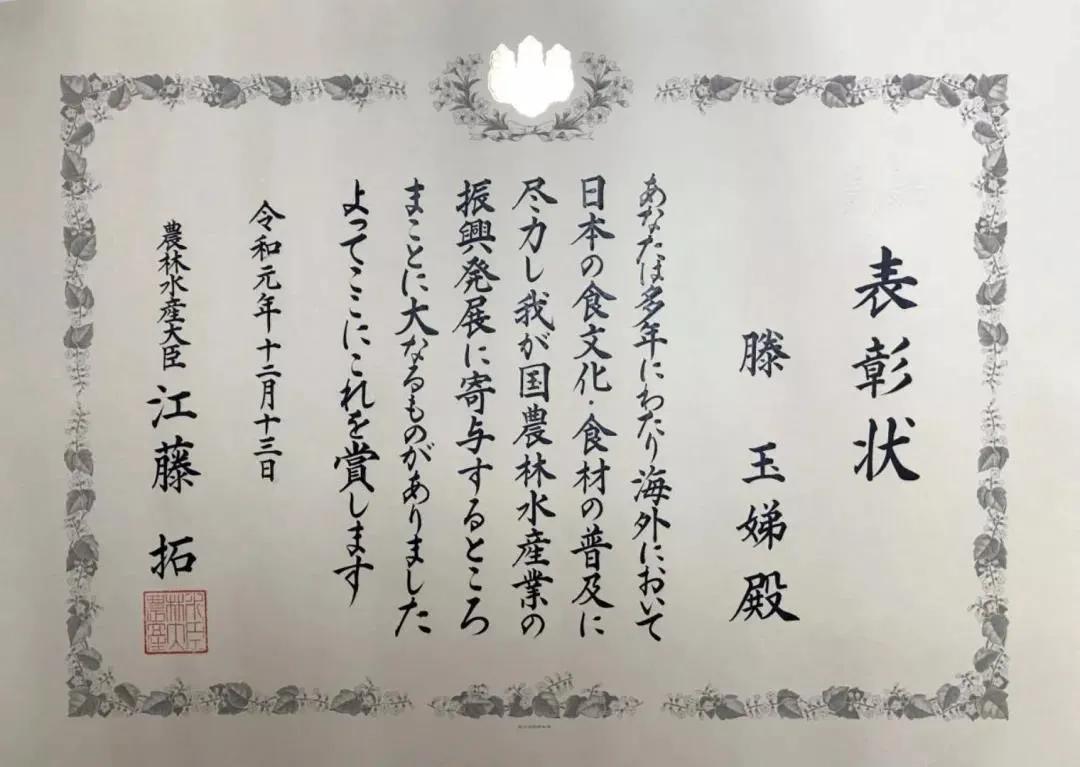 表彰状
滕 玉娣殿
あなたは多年にわたり海外において
日本の食文化・食材の普及に
尽力し我が国農林水産業の
振興発展に寄与するところ
まことに大なるものがありました
よってここにこれを賞します
令和元年十二月十三日
農林水産大臣 江藤 拓